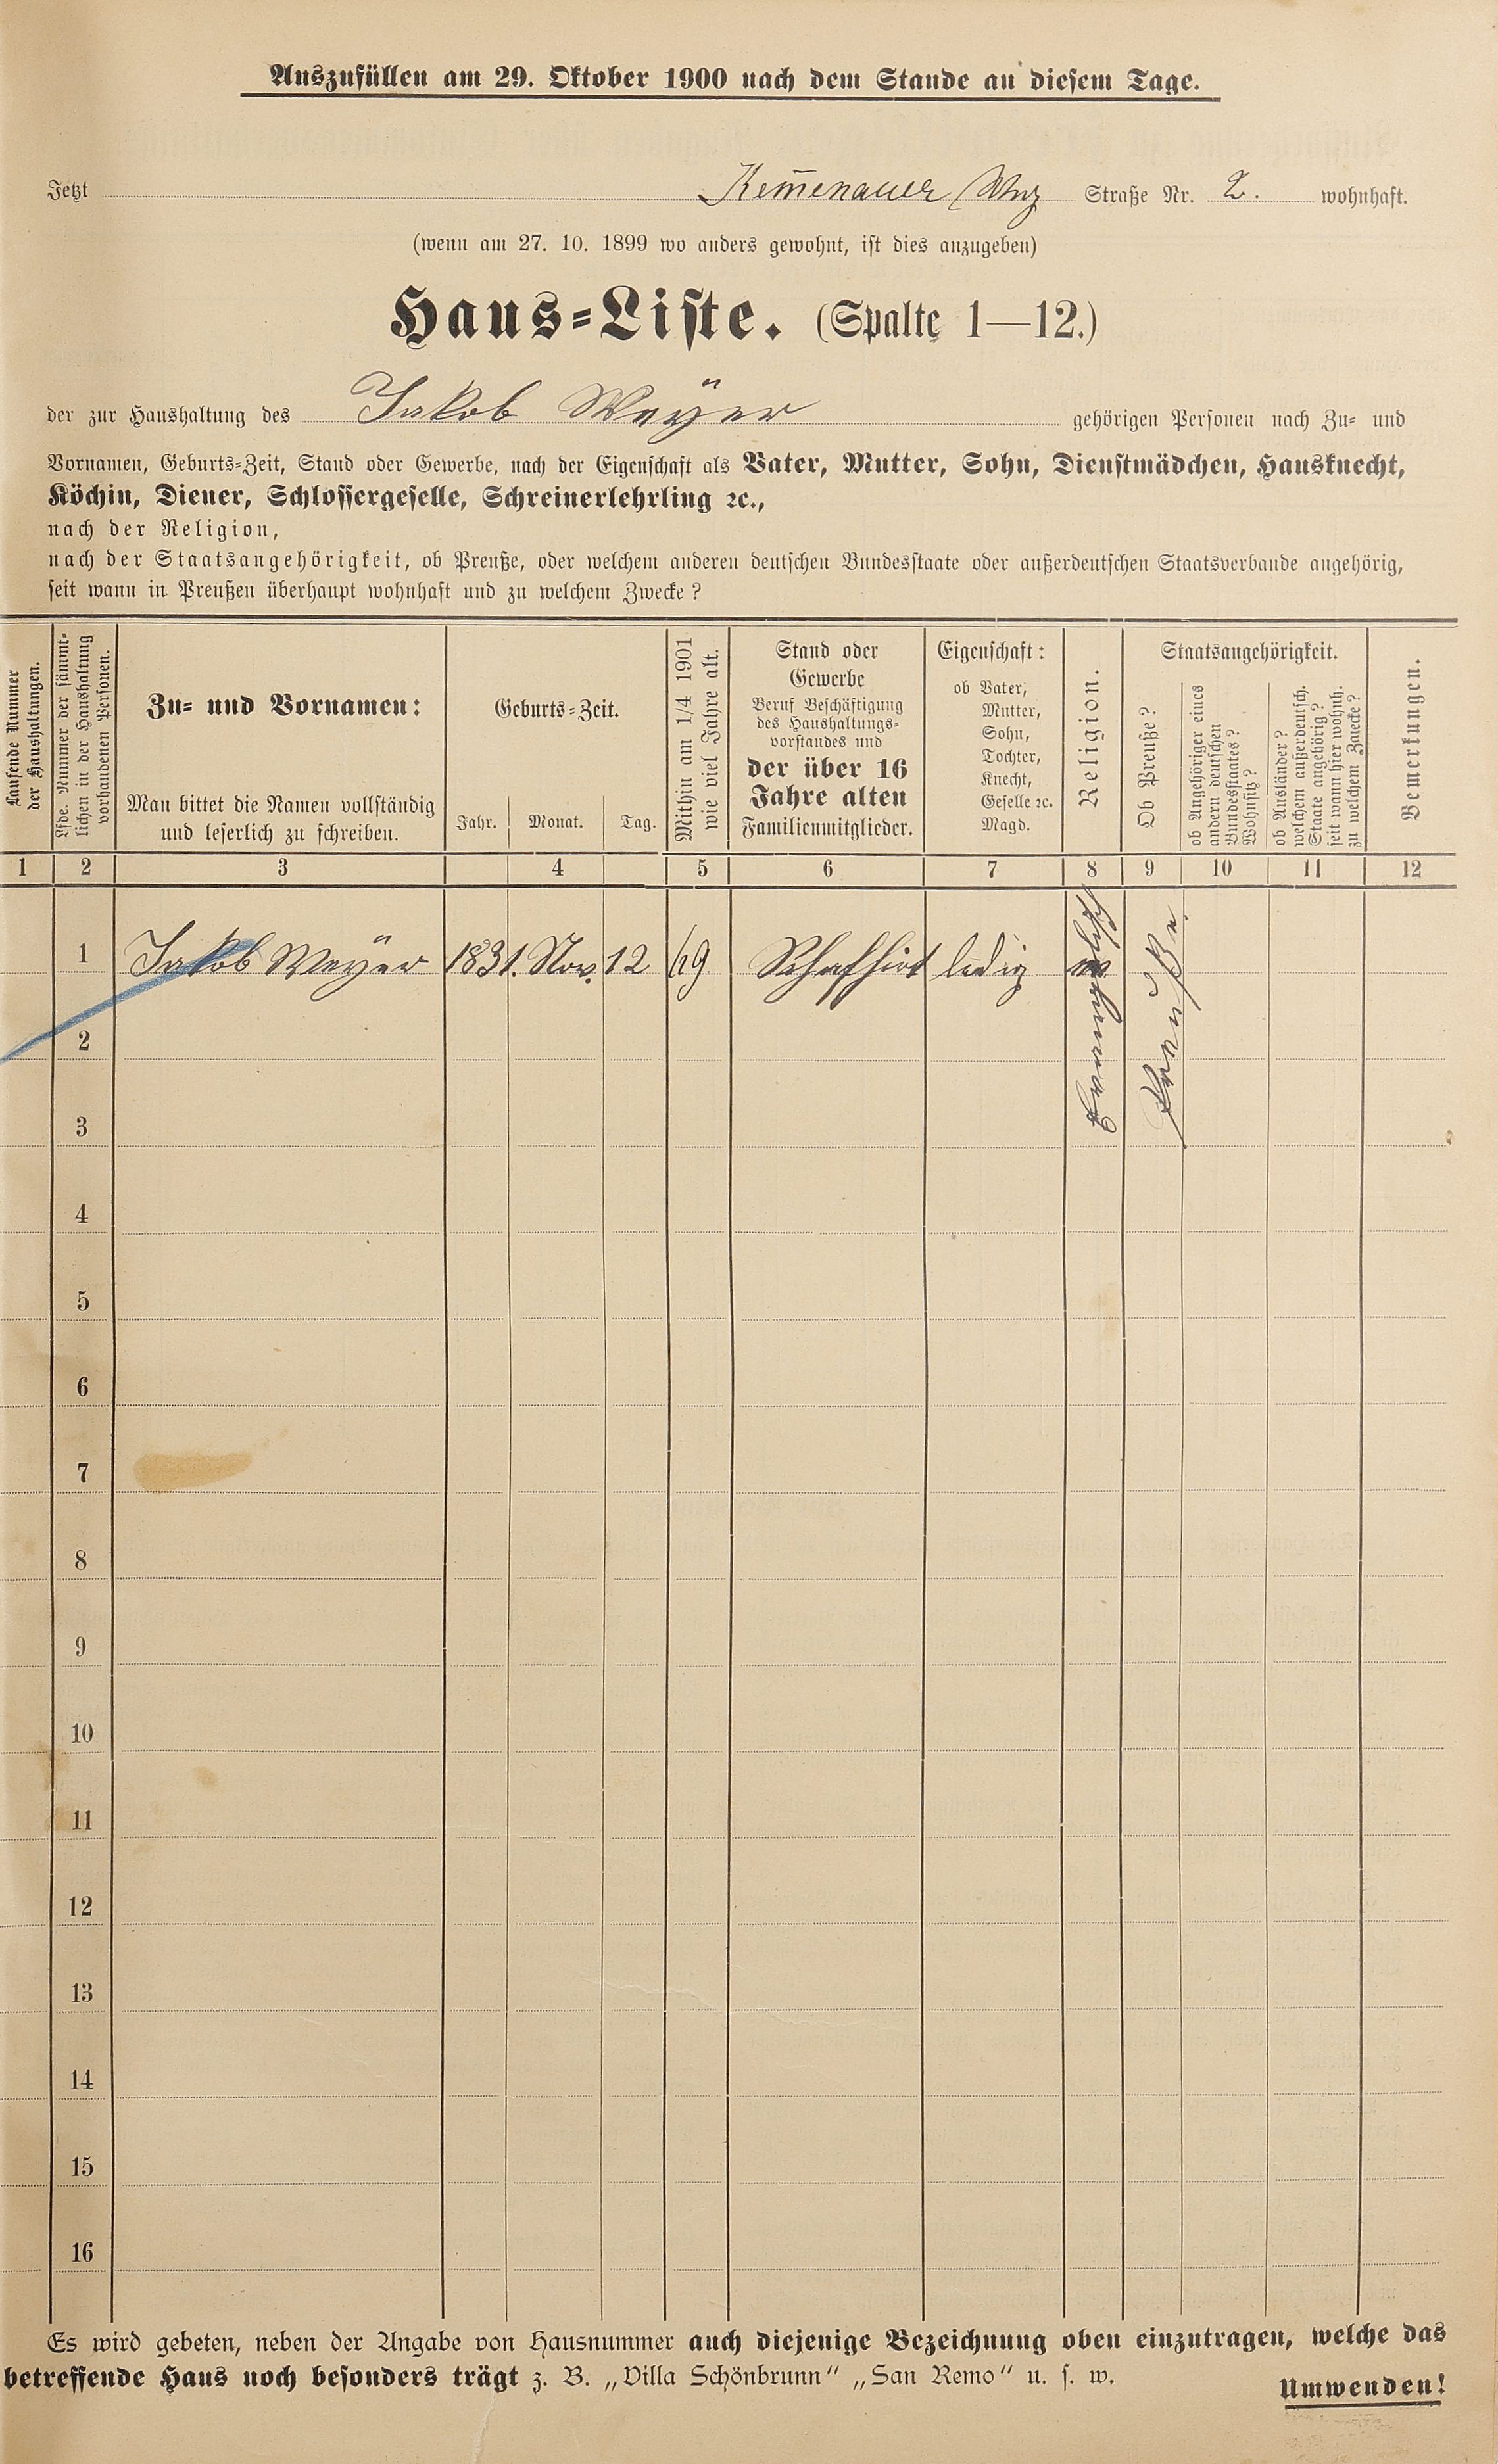 Auszufüllen am 29. Oktober 1900 nach dem Stande an diesem Tage.
Jetzt Kem̄enauer Weg Straße Nr. 2. wohnhaft.
(wenn am 27. 10. 1899 wo anders gewohnt, ist dies anzugeben)
Haus-Liste. (Spalte 1—12.)
der zur Haushaltung des Jakob Weÿer gehörigen Personen nach Zu- und
Vornamen, Geburts-Zeit, Stand oder Gewerbe, nach der Eigenschaft als Vater, Mutter, Sohn, Dienstmädchen, Hausknecht,
Köchin, Diener, Schlossergeselle, Schreinerlehrling ꝛc.,
nach der Religion,
nach der Staatsangehörigkeit, ob Preuße, oder welchem anderen deutschen Bundesstaate oder außerdeutschen Staatsverbande angehörig,
seit wann in Preußen überhaupt wohnhaft und zu welchem Zwecke?
Laufende Nummer
der Haushaltungen.
Lfde. Nummer der sämmt-
lichen in der Haushaltung
vorhandenen Personen.
Zu- und Vornamen:
Man bittet die Namen vollständig
und leserlich zu schreiben.
Geburts-Zeit.
Jahr. Monat. Tag.
Mithin am 1/4 1901
wie viel Jahre alt.
Stand oder
Gewerbe
Beruf Beschäftigung
des Haushaltungs-
vorstandes und
der über 16
Jahre alten
Familienmitglieder.
Eigenschaft:
ob Vater,
Mutter,
Sohn,
Tochter,
Knecht,
Geselle ꝛc.
Magd.
Religion.
Staatsangehörigkeit.
Ob Preuße?
ob Angehöriger eines
andern deutschen
Bundesstaates?
Wohnsitz?
ob Ausländer?
welchem außerdeutsch.
Staate angehörig?
seit wann hier wohnh.
zu welchem Zwecke?
Bemerkungen.
1 2 3 4 5 6 7 8 9 10 11 12
1 Jakob Weÿer 1831. Nov. 12 69 Schafhirt ledig Preuße
2
3
4
5
6
7
8
9
10
11
12
13
14
15
16
Es wird gebeten, neben der Angabe von Hausnummer auch diejenige Bezeichnung oben einzutragen, welche das
betreffende Haus noch besonders trägt z. B. „Villa Schönbrunn“ „San Remo“ u. s. w.
Umwenden!